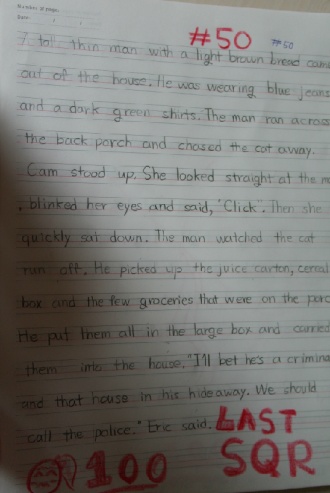 Number of pages:
Date:
#50 #50
A tall thin man with a light brown bread came
out of the house. He was wearing blue jeans
and a dark green shirts. The man ran across
the back porch and chased the cat away.
Cam stood up. She looked straight at the
, blinked her eyes and said, "Click". Then she
quickly sat down. The man watched the cat
run off. He picked up the juice carton, cereal
box and the few groceries that were on the porc
He put them all in the large box and carried
them into the house. "I'll bet he's a crimina
and that house in his hideaway. We should
call the police." Eric said. LAST
100 SQR